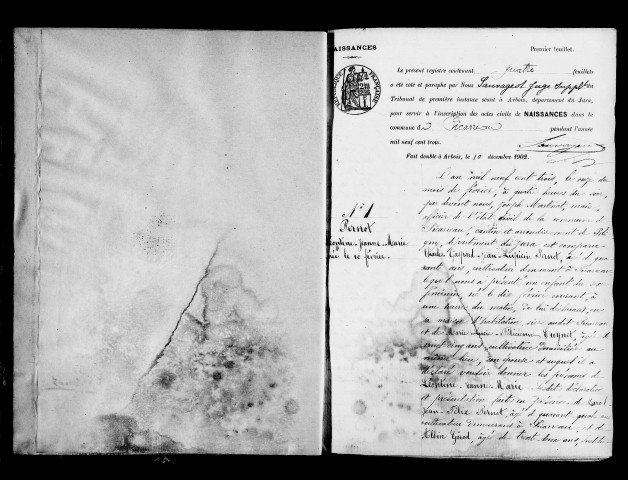 NAISSANCES
Premier feuillet.
Le présent registre contenant quatre feuillets
a été coté et paraphé par Nous Sauvageot Juge Supplt du
Tribunal de première instance séant à Arbois, département du Jura,
pour servir à l'inscription des actes civils de NAISSANCES dans la
commune de Picarreau pendant l'année
mil neuf cent trois.
Fait double à Arbois, le 10 décembre 1902.
RÉPUBLIQUE FRANÇAISE
N° 1
Pernot
Léontine-Jeanne-Marie
née le 10 février.
L'an mil neuf cent trois, le onze du
mois de février, à quatre heures du soir,
par devant nous, Joseph Martinet, maire,
officier de l'état civil de la commune de
Picarreau, canton et arrondissement de Poli-
gny, département du Jura est comparu
Pernot, âgé de qua-
rante ans, cultivateur demeurant à Picarreau
lequel nous a présenté un enfant du sexe
féminin, né le dix février courant, à
une heure du matin, de lui déclarant, en
sa maison d'habitation sise audit Picarreau
et de Marie âgée de
vingt cinq ans cultivatrice domiciliée au
même lieu, son épouse et auquel il a
déclaré vouloir donner les prénoms de
Léontine-Jeanne-Marie. Lesdites déclaration
et présentation fait en présence de
Jean-Félix Pernot, âgé de quarante ans
cultivateur demeurant à Picarreau, et de
Albin Girod, âgé de trente-deux ans,